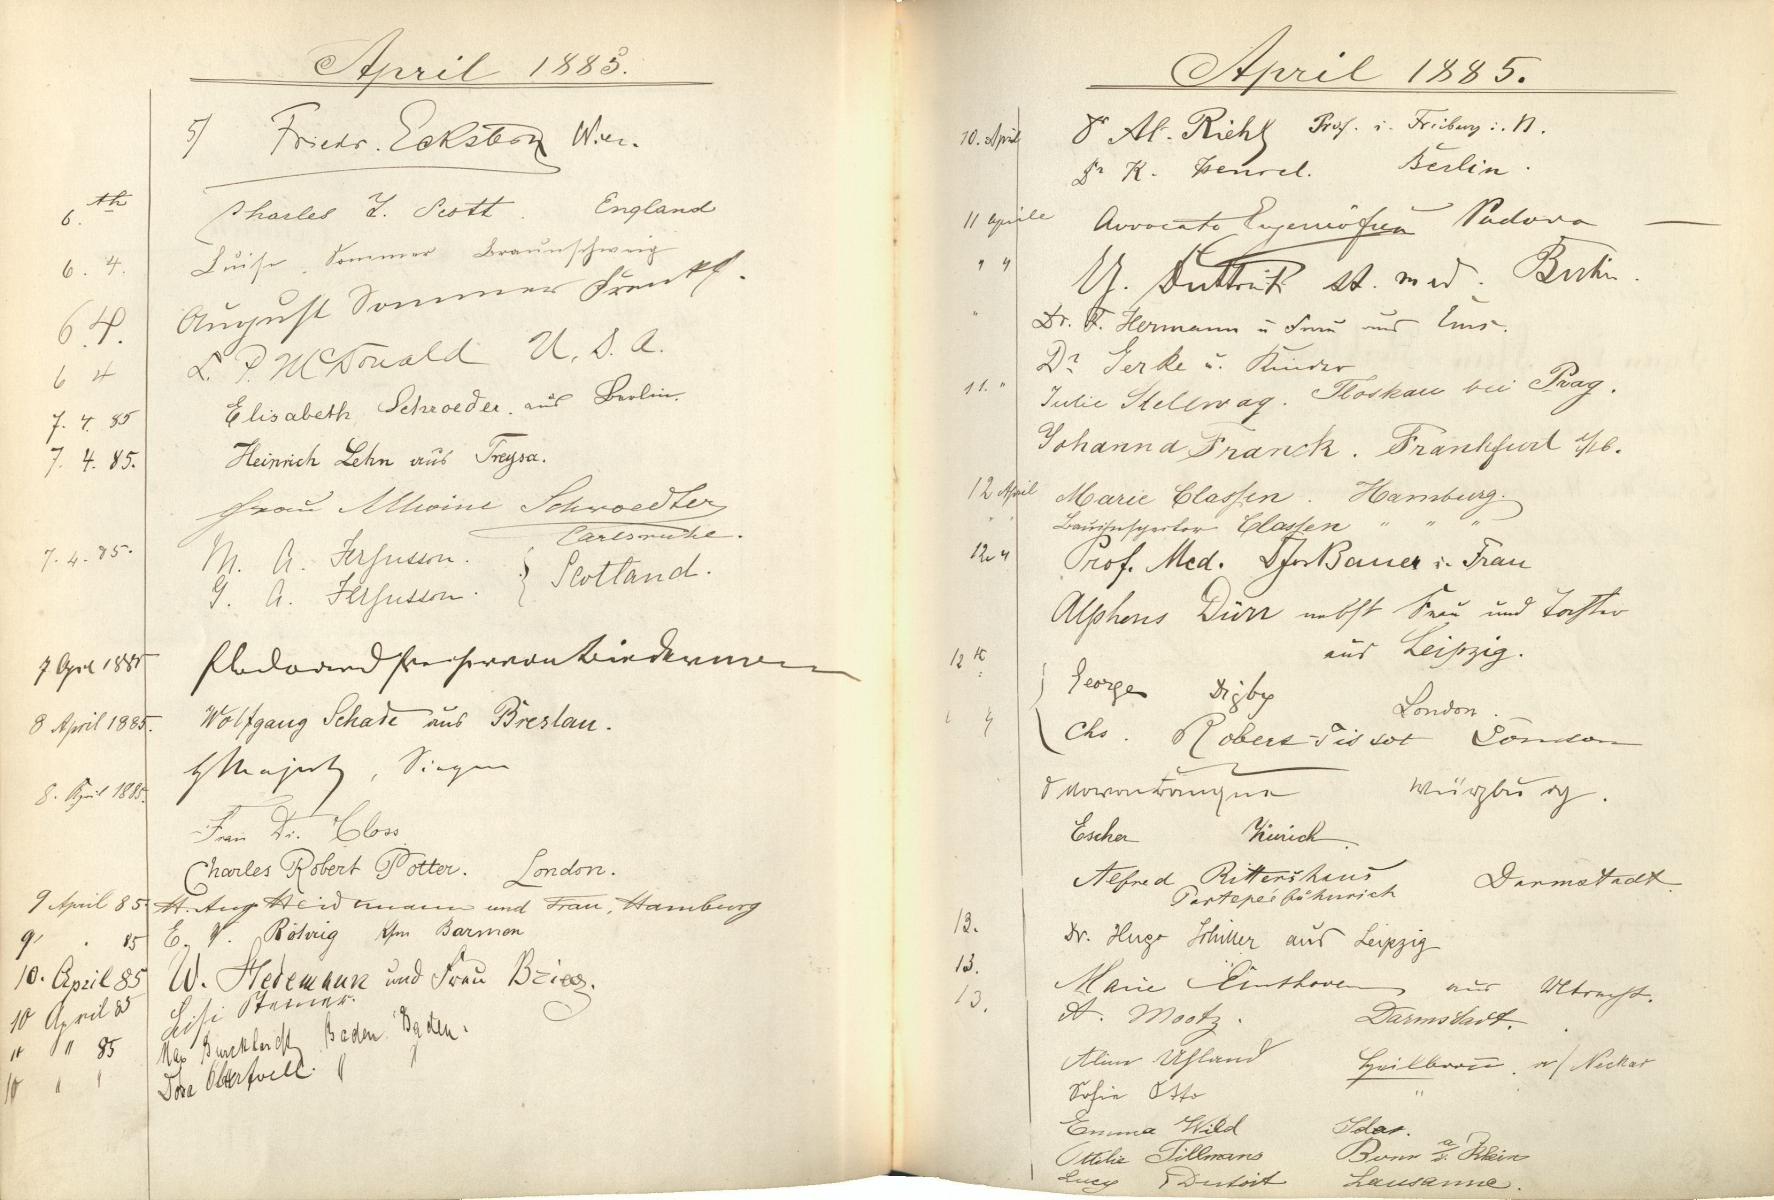 April 1885.
5) Friedr. Eckstein Wien.
6.th Charles L. Scott. England
6. 4. Luise Sommer Braunschweig
6. 4. August Sommer Frankf.
6 4 L. P. McDonald U. S. A.
7. 4. 85 Elisabeth Schroeder. aus Berlin.
7. 4. 85. Heinrich Lehn aus Treysa.
Frau Alwine Schroedter
Carlsruhe.
7. 4. 85. M. A. Fergusson.
G. A. Fergusson. } Scotland.
7 April 1885 Flodoard Freiherr von Biedermann
8 April 1885. Wolfgang Schade aus Breslau.
8. April 1885. Siegen
Frau Dr. Closs
Charles Robert Potter. London.
9 April 85 H. Aug Heidmann und Frau, Hamburg
9 " 85 E. Röhrig Kfm Barmen
10. April 85 W. Hedemann und Frau Brieg.
10 April 85 Steiner.
10 " 85 Max Burckhardt Baden Baden.
10 " " Dora " "
April 1885.
10. April Dr Al. Riehl Prof. i. Freiburg i. B.
Dr K. Berlin.
11 aprile Avvocato Eugenio Padova —
" " st. med. Berlin.
" Dr. F. Hermann u Frau aus Ems.
Dr Gerke u. Kinder
11. " Julie Stellwag. bei Prag.
Johanna Franck. Frankfurt
12 April Marie Classen. Hamburg.
" " Bauinspector Classen " " "
12. " Prof. Med. Bauer u. Frau
Alphons Dürr nebst Frau und Tochter
aus Leipzig.
12 { George Digby London.
Chs. Robert-Tissot London
Würzburg.
Escher Zürich
Alfred Rittershaus Darmstadt.
Portepéefähnrich
13. Dr. Hugo Schiller aus Leipzig
13. Marie Einthoven aus Utrecht.
13. A. Mootz. Darmstadt.
Uhland Heilbronn a/Neckar
Sofie Otto "
Emma Wild Idar.
Ottilie Tillmans Bonn a. Rhein
Lucy Dutoit Lausanne.